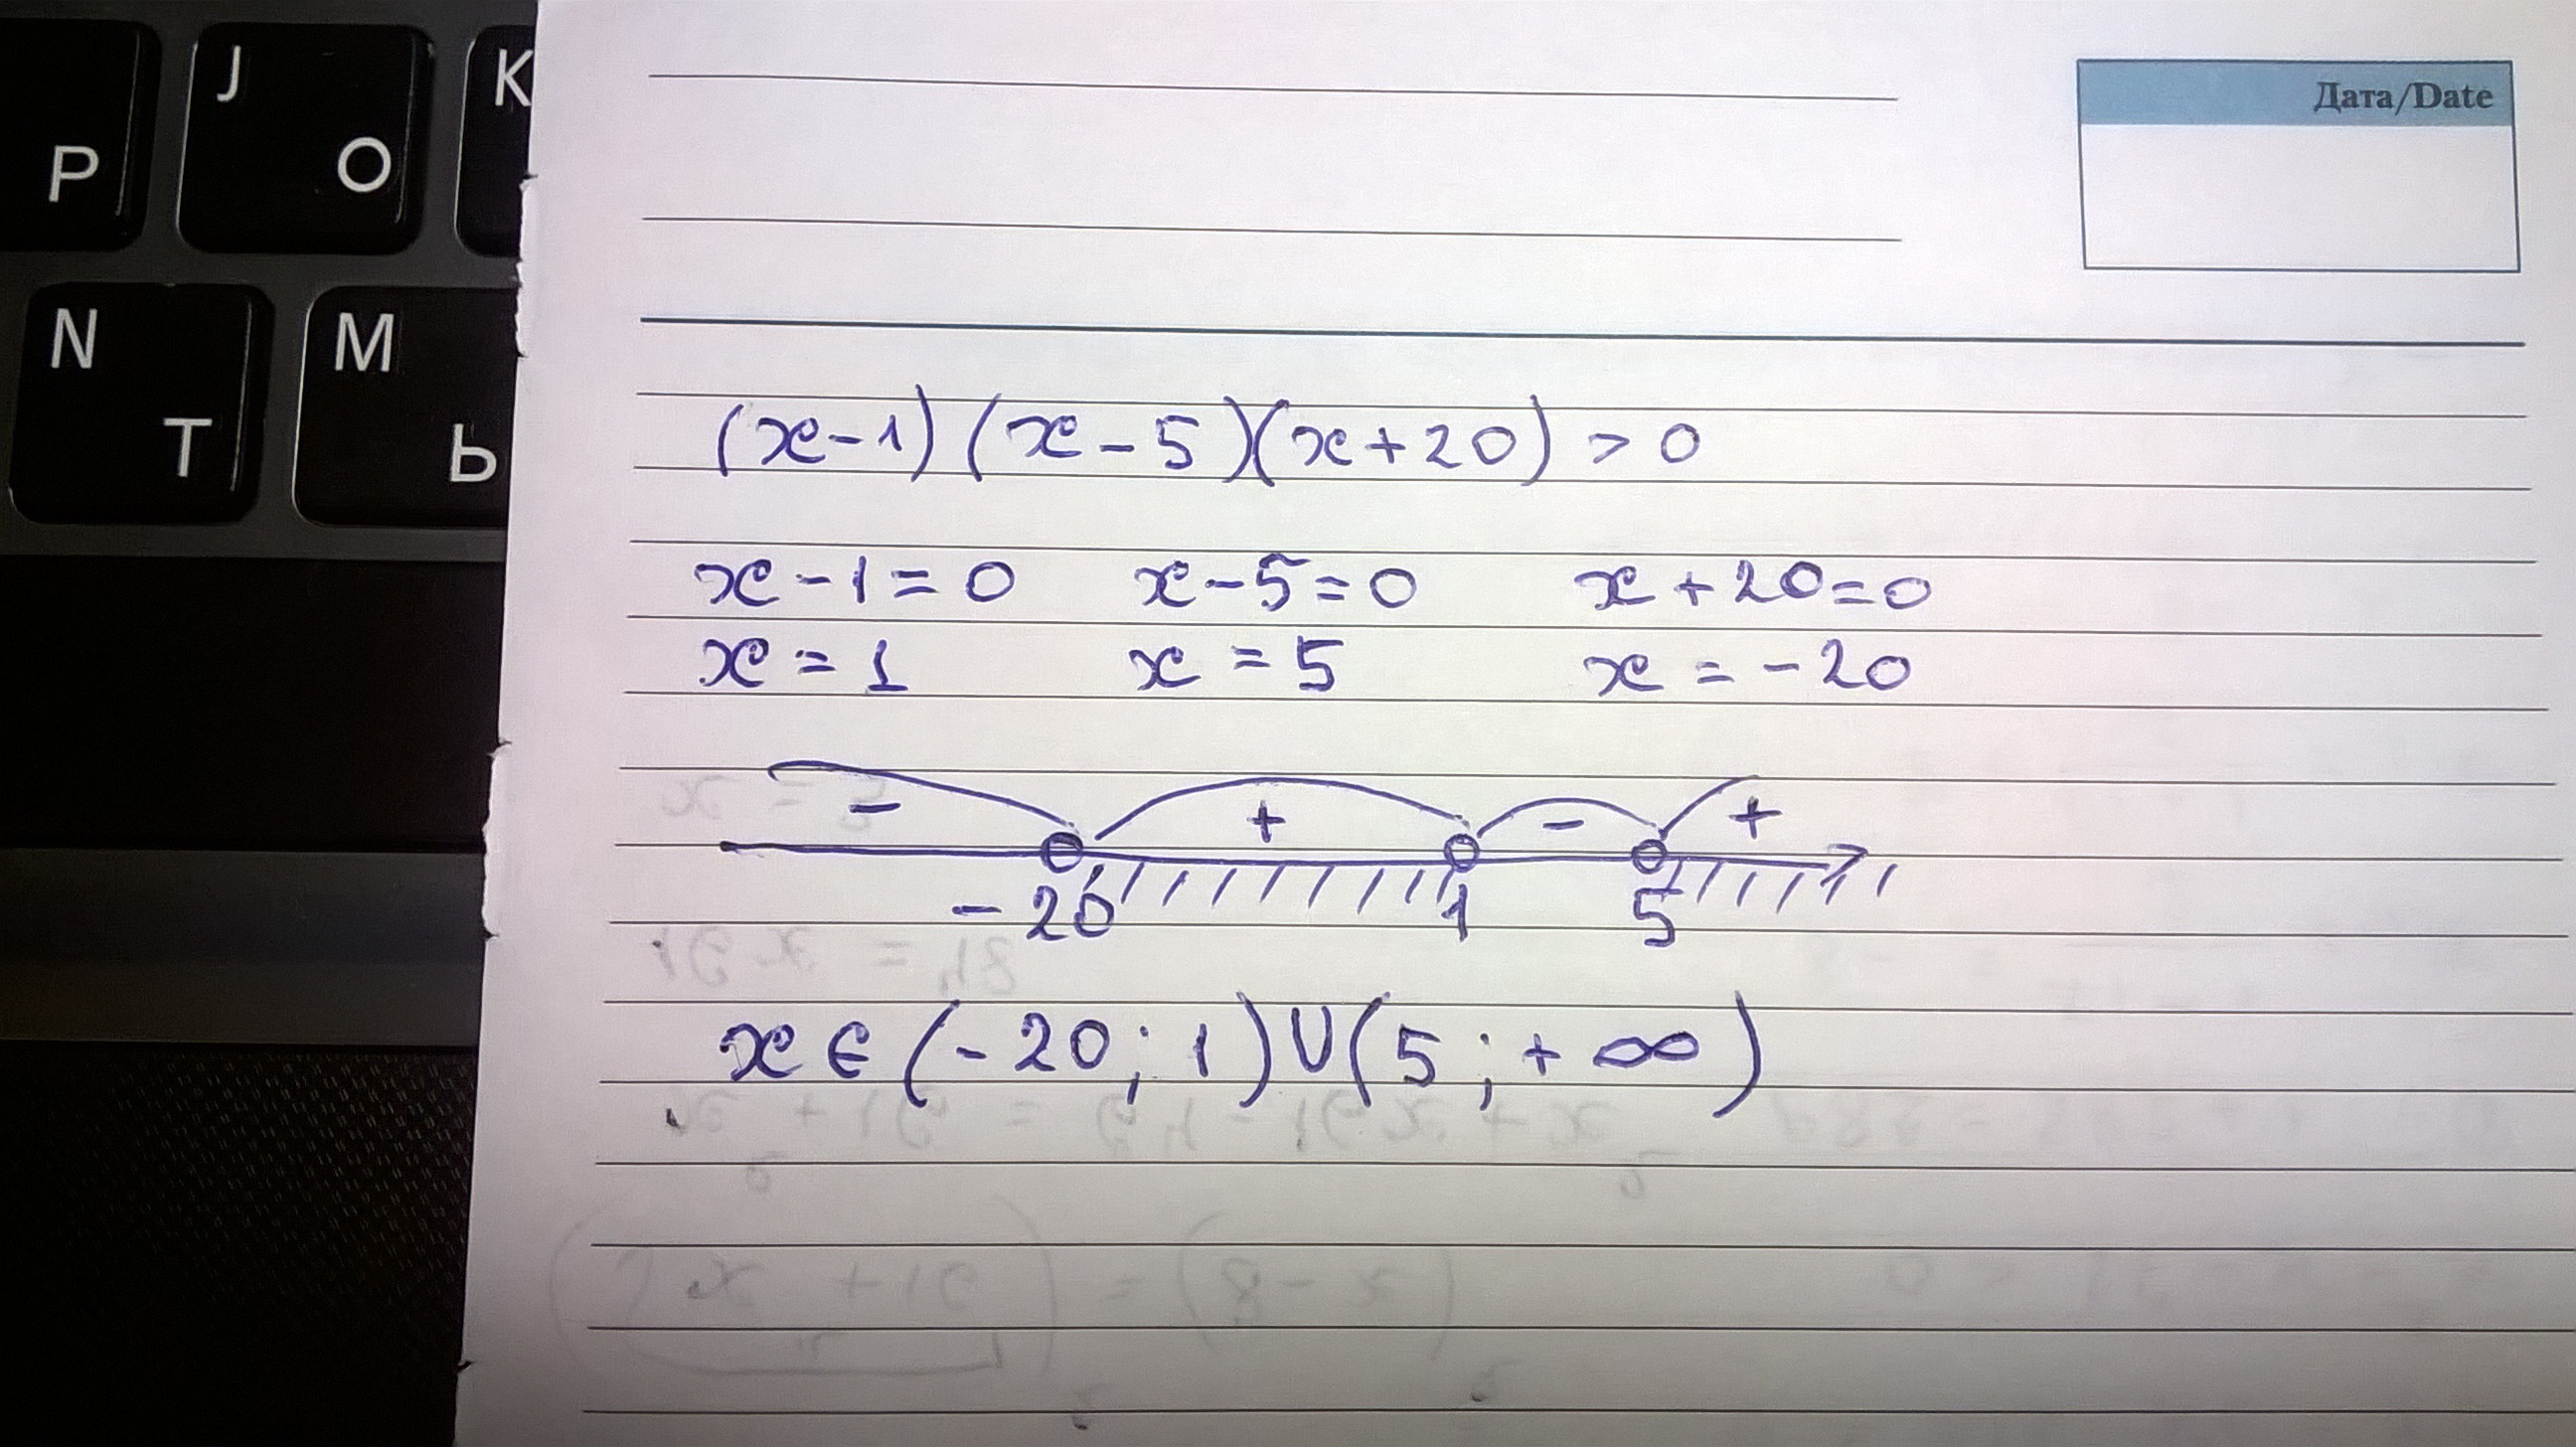 J
K
P
O
Дата/Date
N
M
T
Ь
(x-1)(x-5)(x+20) > 0
x-1=0 x-5=0 x+20=0
x=1 x=5 x=-20
- + - +
-20 1 5
x∈(-20; 1)∪(5; +∞)